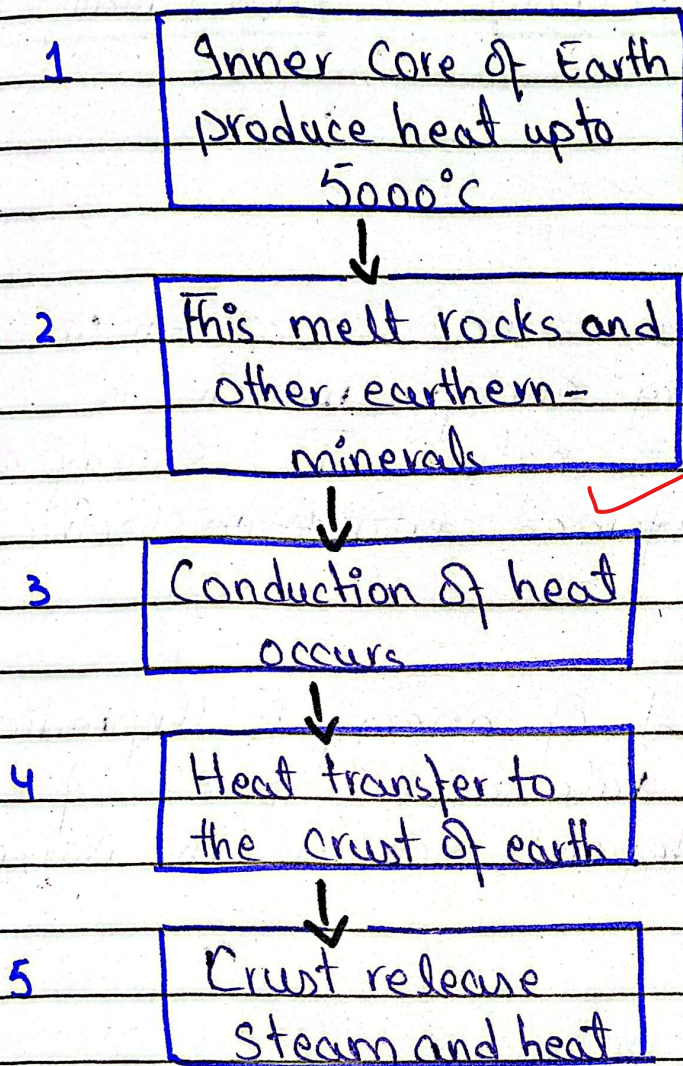 1
Inner Core of Earth
produce heat upto
5000°C
2
This melt rocks and
other earthern-
minerals
3
Conduction of heat
occurs
4
Heat transfer to
the crust of earth
5
Crust release
steam and heat